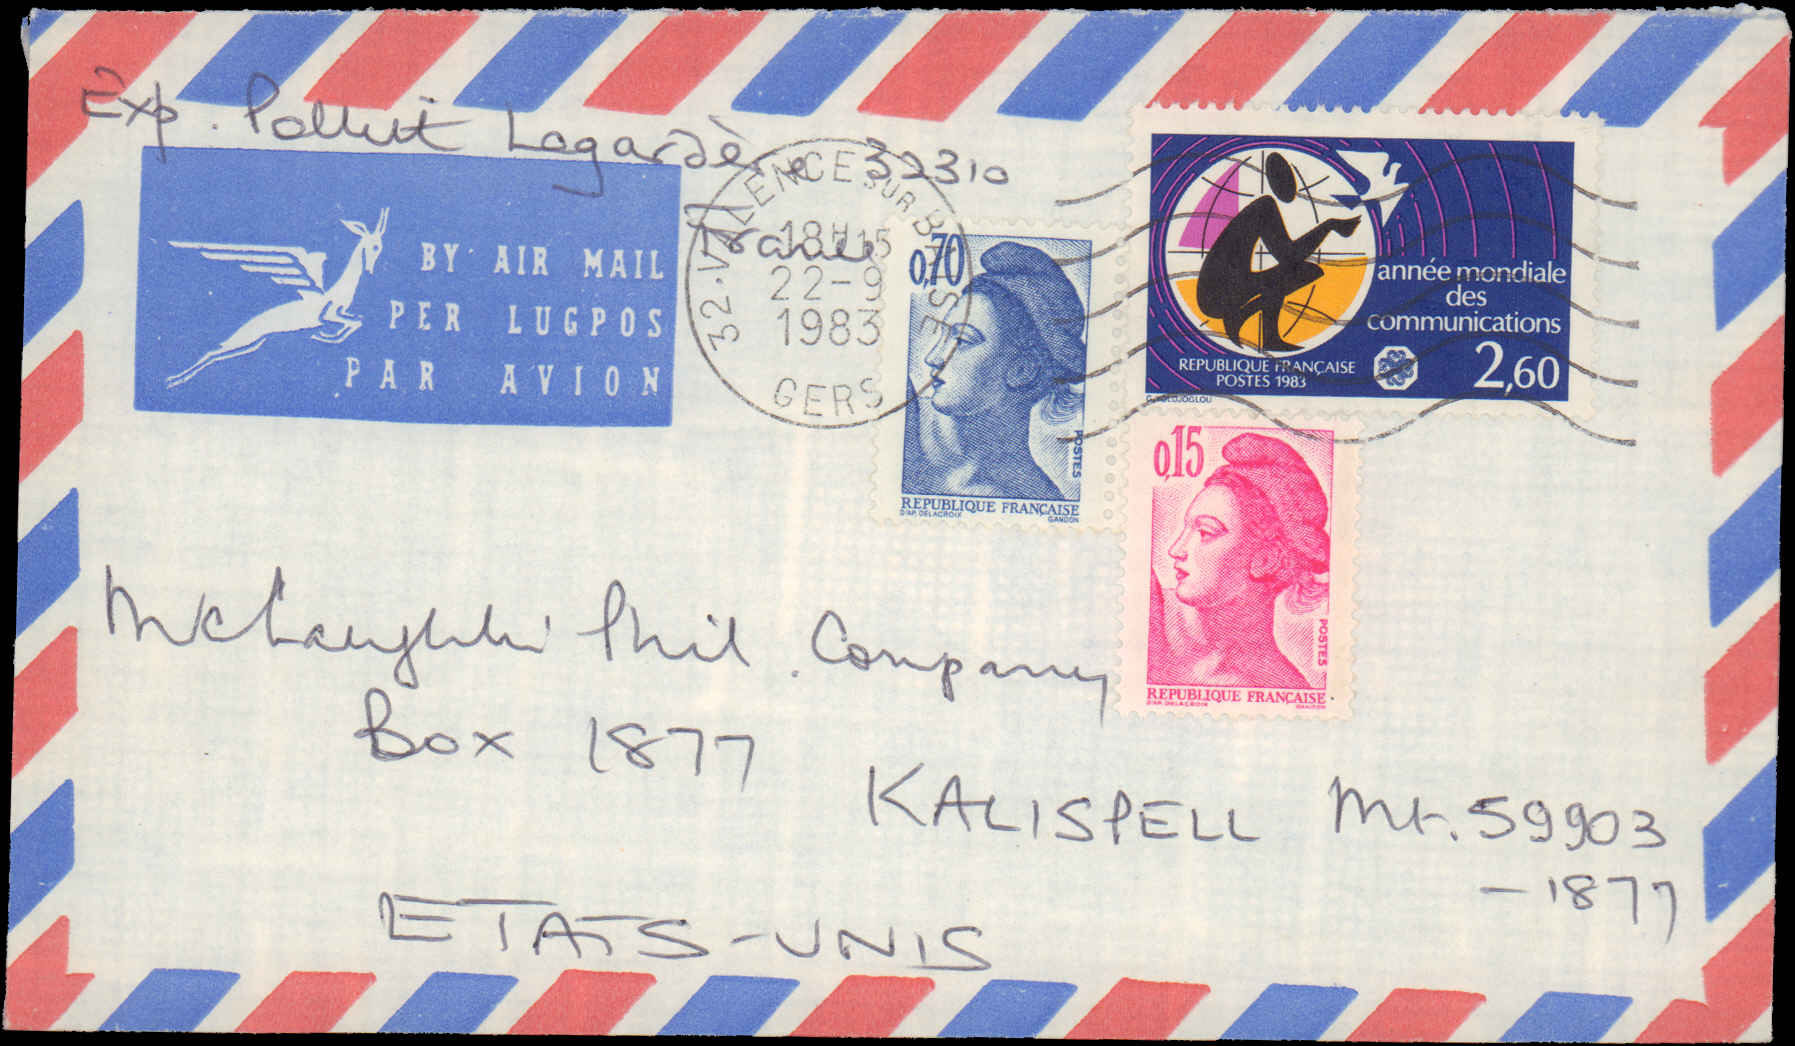 Exp. Pollut Lagardère 32310
France
BY AIR MAIL
PER LUGPOS
PAR AVION
32-VALENCE SUR BAISE
18H15
22-9
1983
GERS
0,70
POSTES
REPUBLIQUE FRANÇAISE
D'AP. DELACROIX GANDON
année mondiale
des
communications
REPUBLIQUE FRANÇAISE
POSTES 1983
2,60
0,15
POSTES
REPUBLIQUE FRANÇAISE
D'AP. DELACROIX GANDON
McLaughlin Phil. Company
Box 1877
KALISPELL Mt. 59903
-1877
ETATS-UNIS